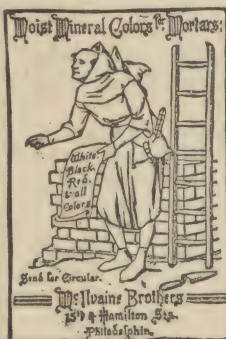 Moist Mineral Colors for Mortars:
White.
Black.
Red.
& all
Colors.
Send for Circular.
McIlvaine Brothers
15th & Hamilton Sts.
Philadelphia.